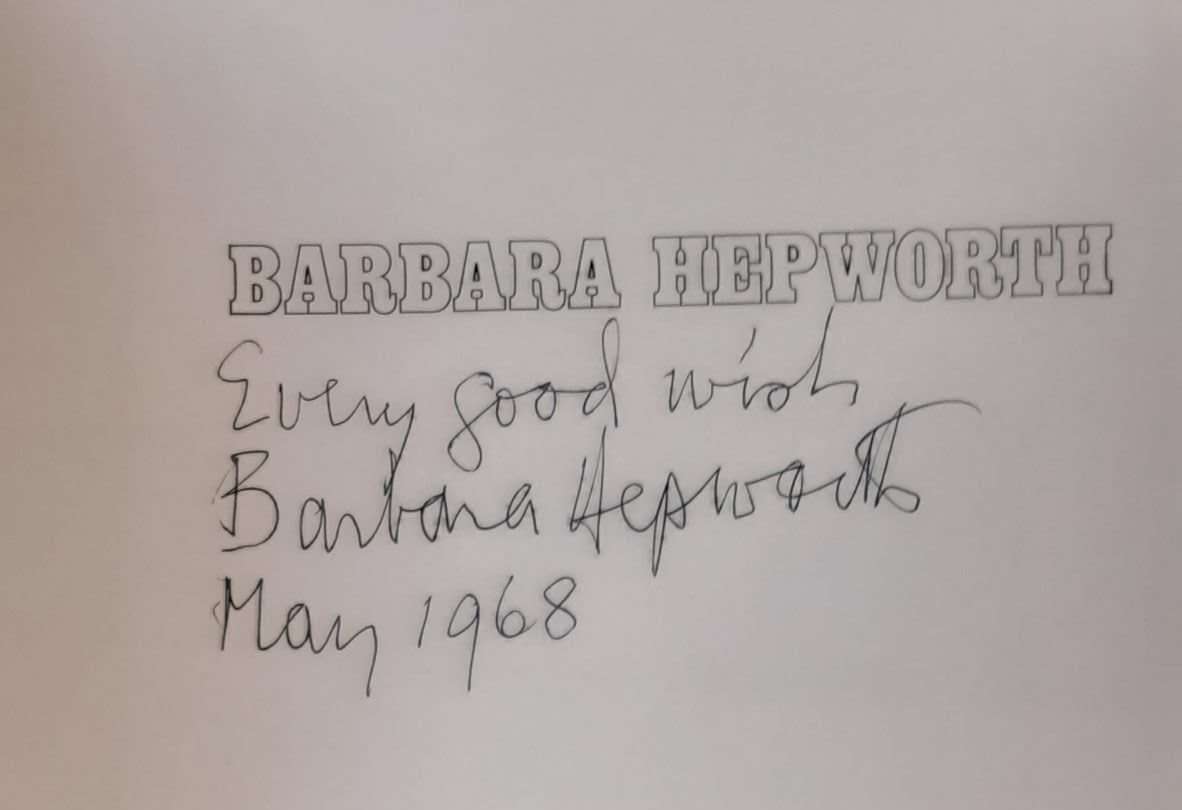 BARBARA HEPWORTH
Every good wish
Barbara Hepworth
May 1968